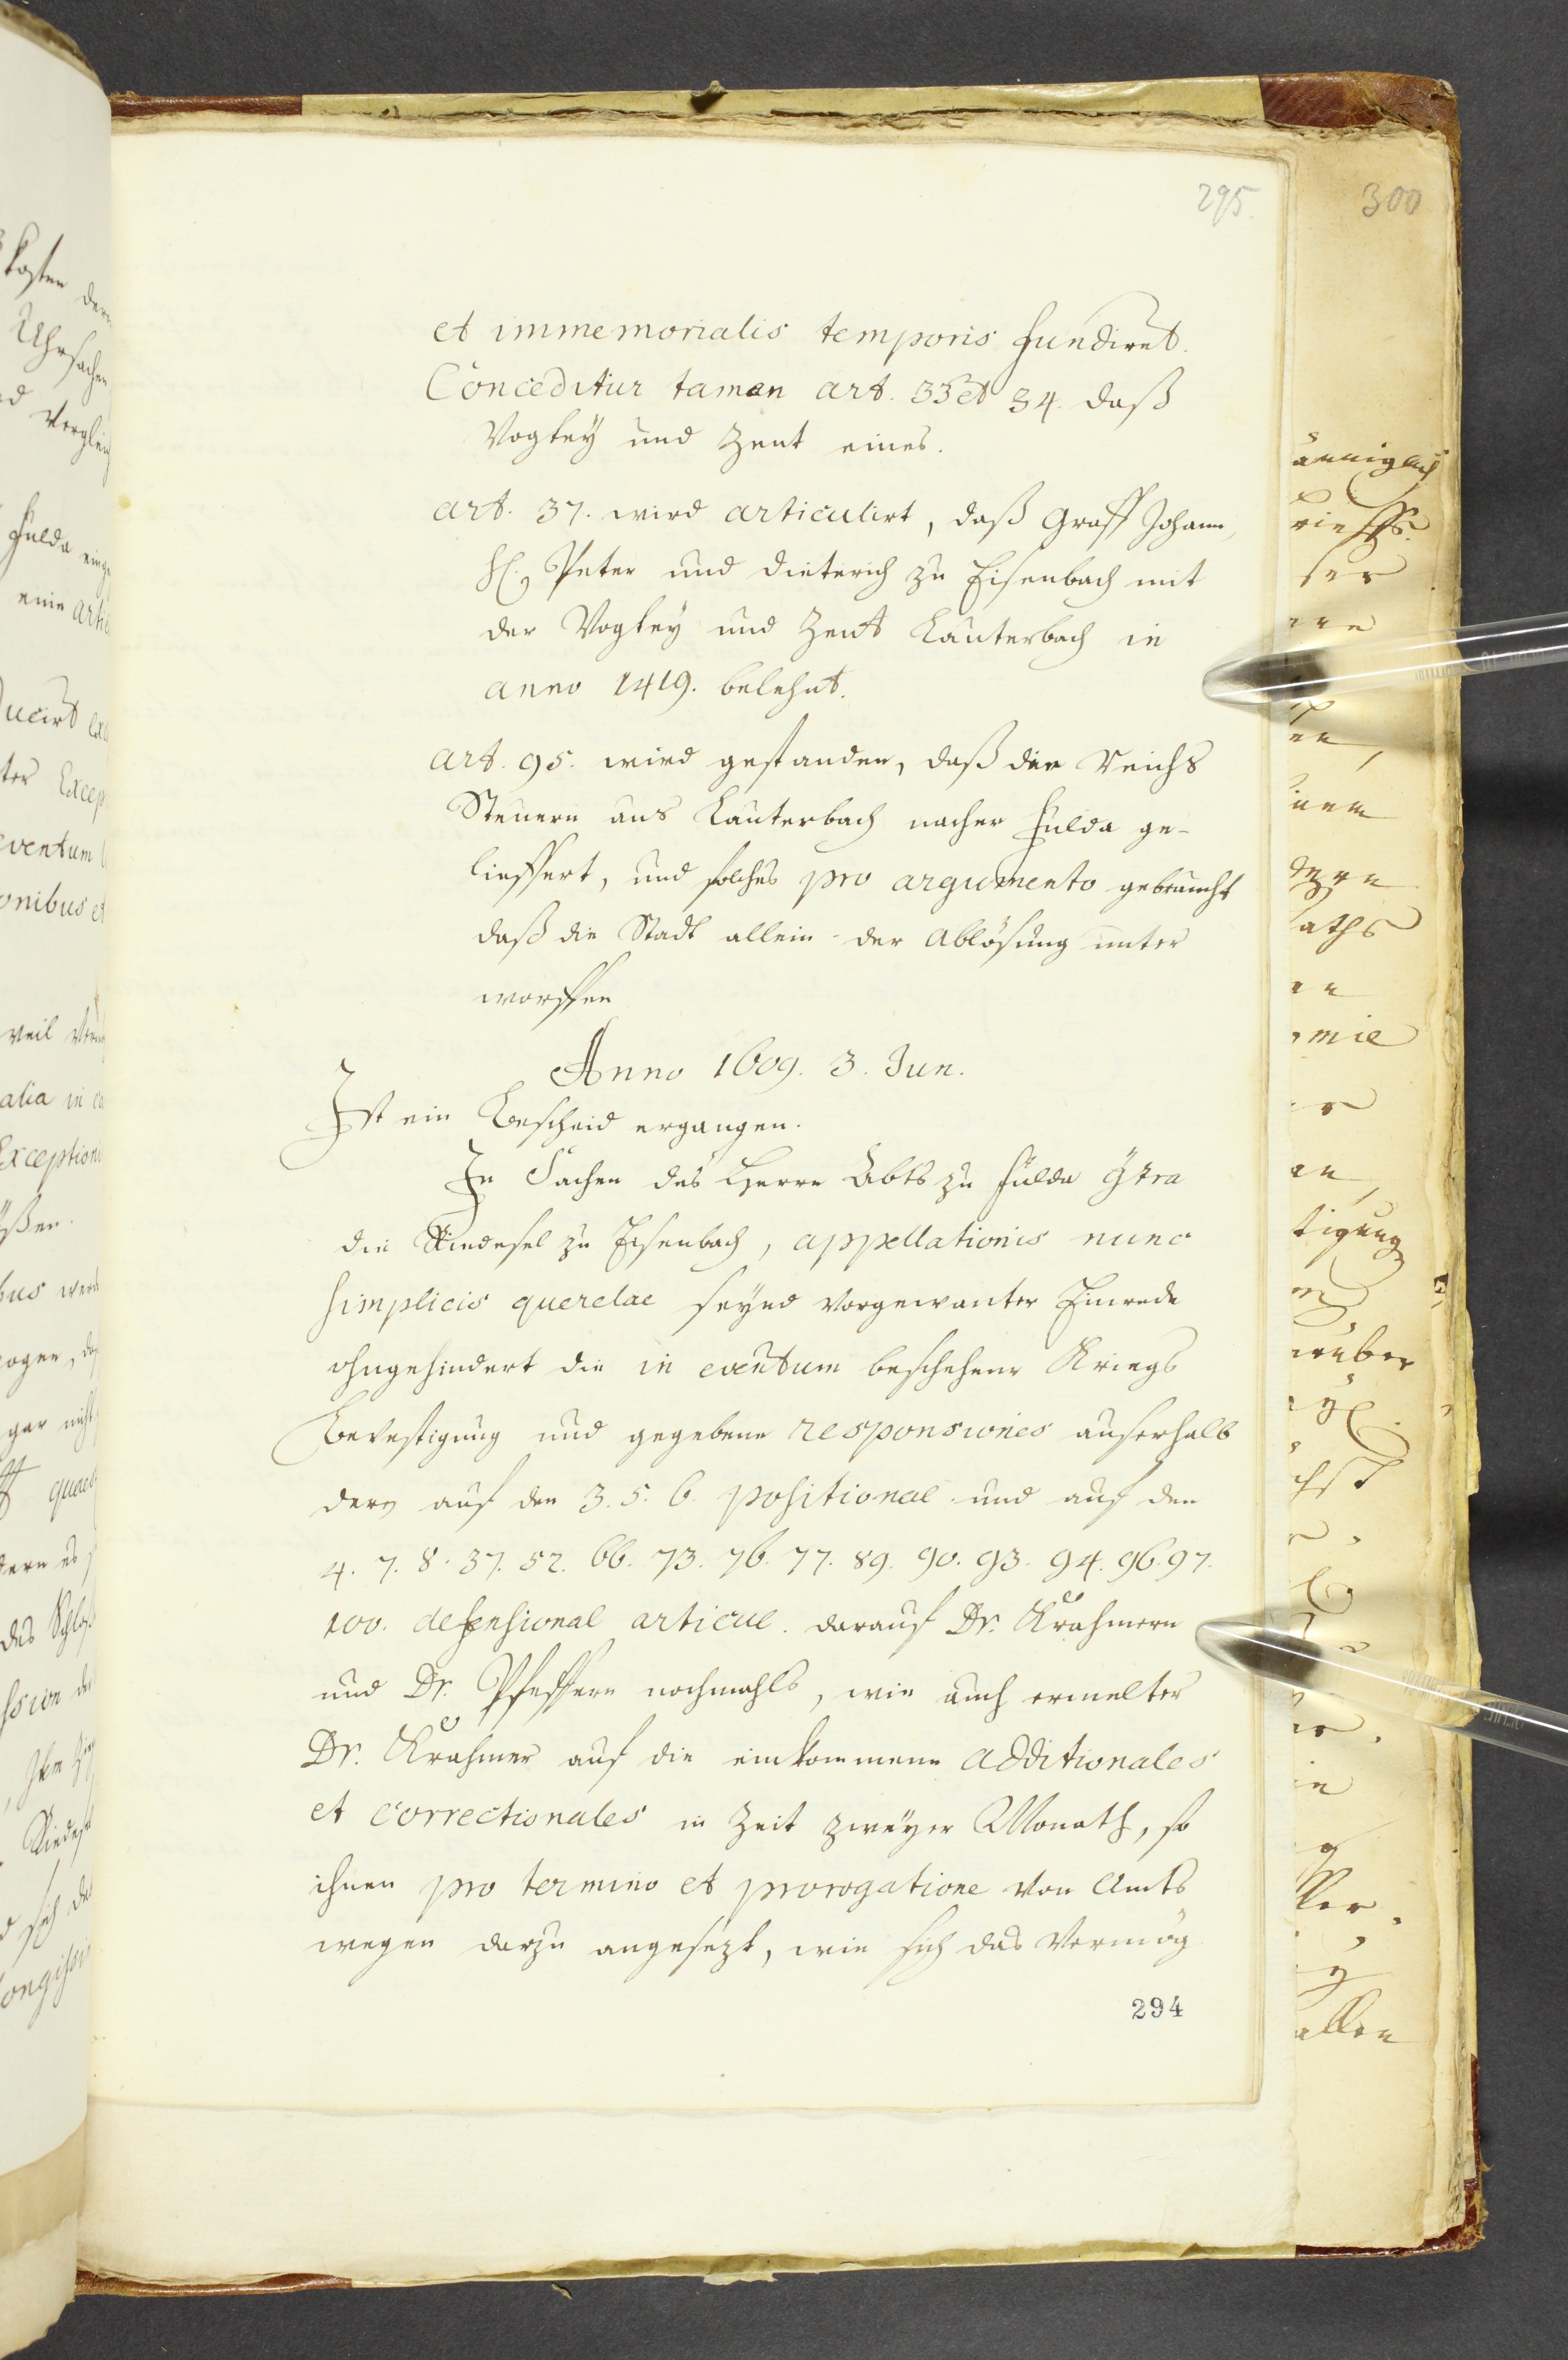 295.
300
et immemorialis temporis fundiret.
Conceditur tamen art. 33 et 34. daß
Vogtey und Zent eines.
art. 37. wird articulirt, daß Graff Johann,
H. Peter und Dieterich zu Eisenbach mit
der Vogtey und Zent Lauterbach in
anno 1419. belehnt.
art. 95. wird gestanden, daß die Reichs
Steuern aus Lauterbach nacher Fulda ge-
lieffert, und solches pro argumento gebraucht
daß die Stadt allein der Ablösung unter
worffen
Anno 1609. 3. Jun.
Ist ein Bescheid ergangen.
In Sachen des Herrn Abts zu Fulda c̃tra
die Riedesel zu Eisenbach, appellationis nunc
simplicis querelae seynd vorgewanter Einrede
ohngehindert die in eventum beschehene Kriegs
Bevestigung und gegebene responsiones auserhalb
derer auf den 3. 5. 6. positional und auf den
4. 7. 8. 37. 52. 66. 73. 76. 77. 89. 90. 93. 94. 96. 97.
100. defensional articul. darauf Dr. Krahmern
und Dr. Pfeffern nochmahls, wie auch ermelter
Dr. Krahmer auf die einkommene additionales
et correctionales in Zeit zweyer Monath, so
ihnen pro termino et prorogatione von Amts
wegen darzu angesezt, wie sich das vermög
294